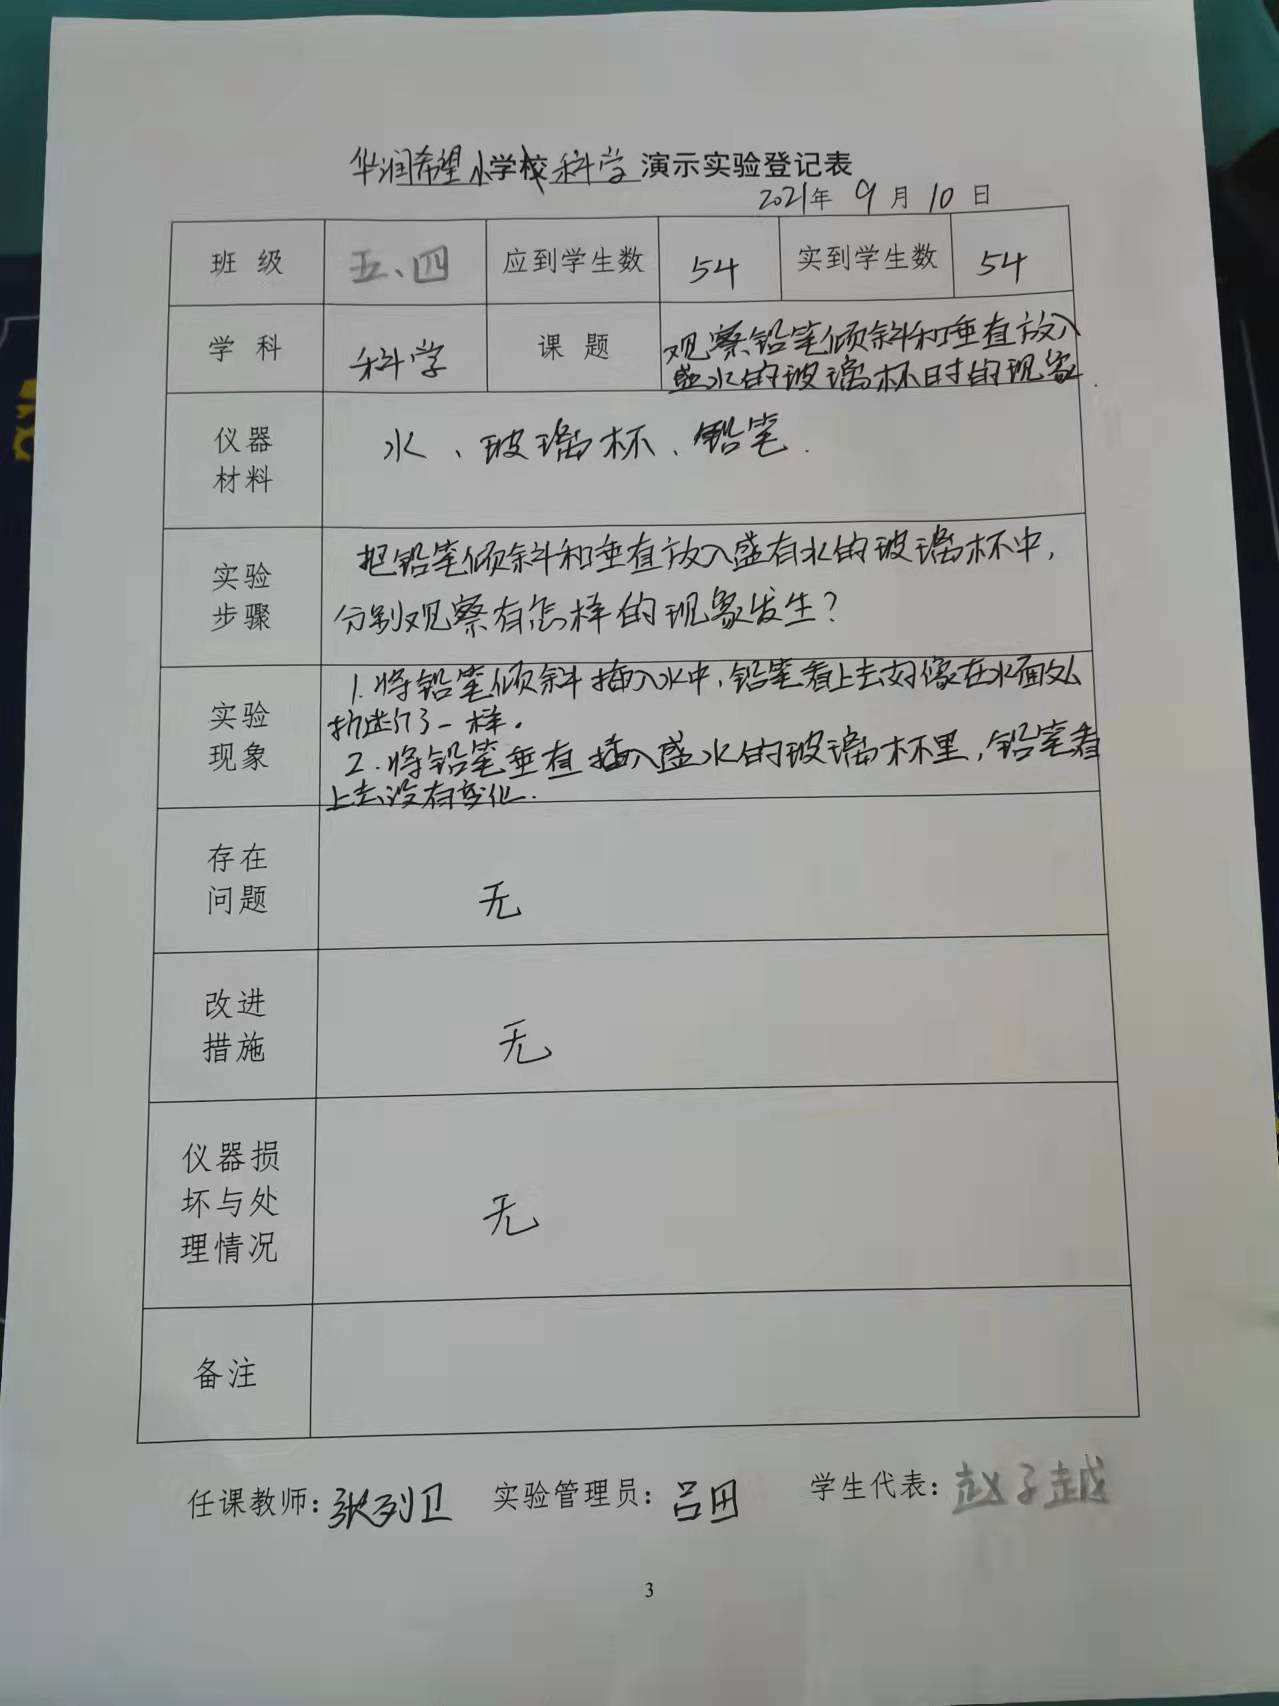 华润希望小学校科学演示实验登记表
2021年 9月10日
班 级 五、四 应到学生数 54 实到学生数 54
学 科 科学 课 题 观察铅笔倾斜和垂直放入
盛水的玻璃杯时的现象.
仪器
材料
水、玻璃杯、铅笔.
实验
步骤
把铅笔倾斜和垂直放入盛有水的玻璃杯中,
分别观察有怎样的现象发生?
实验
现象
1.将铅笔倾斜插入水中,铅笔看上去好像在水面处
折断了一样。
2.将铅笔垂直插入盛水的玻璃杯里,铅笔看
上去没有变化.
存在
问题
无
改进
措施
无
仪器损
坏与处
理情况
无
备注
任课教师:张列卫 实验管理员:吕田 学生代表:赵子越
3